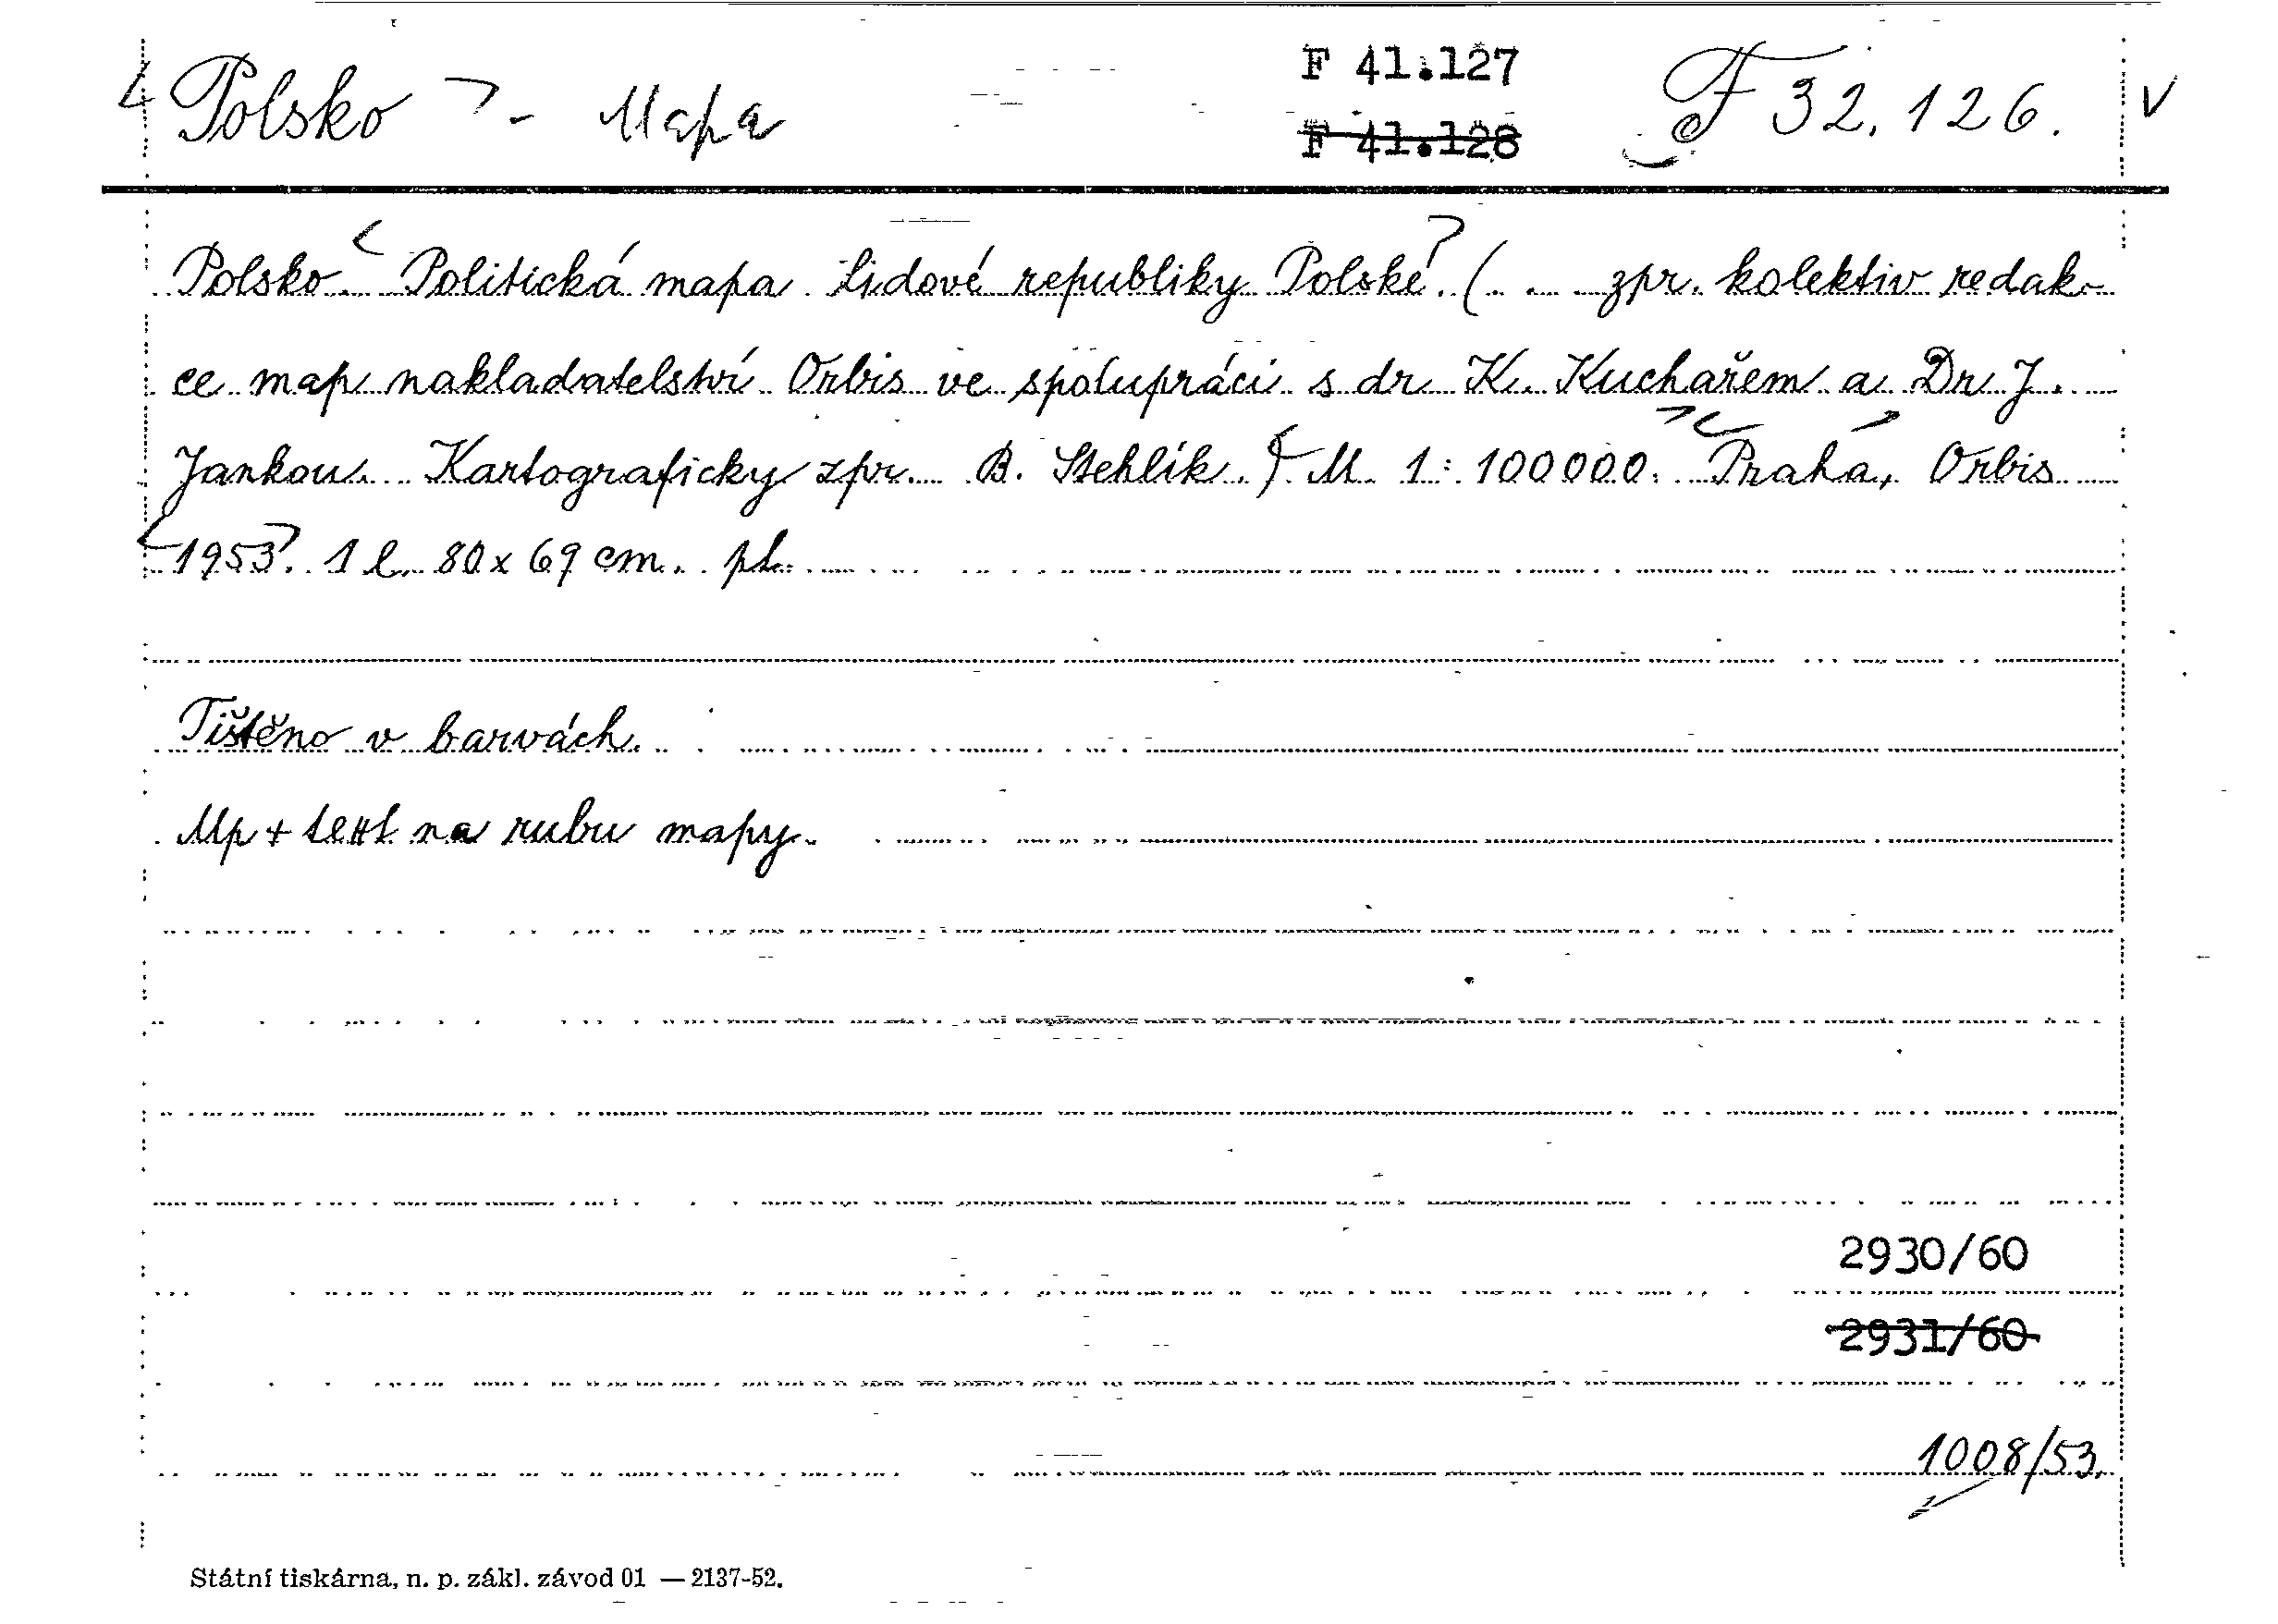 Polsko - Mapa F 41.127 F 32.126. V
F 41.128
Polsko. Politická mapa Lidové republiky Polské. (... zpr. kolektiv redak-
ce map nakladatelství Orbis ve spolupráci s dr. K. Kuchařem a Dr J.
Jankou. Kartograficky zpr. B. Stehlík.) M 1:100000. Praha, Orbis
1953. 1 l. 80x69 cm. pl.
Tištěno v barvách.
Mp + text na rubu mapy.
2930/60
2931/60
1008/53.
Státní tiskárna, n. p. zákl. závod 01 — 2137-52.